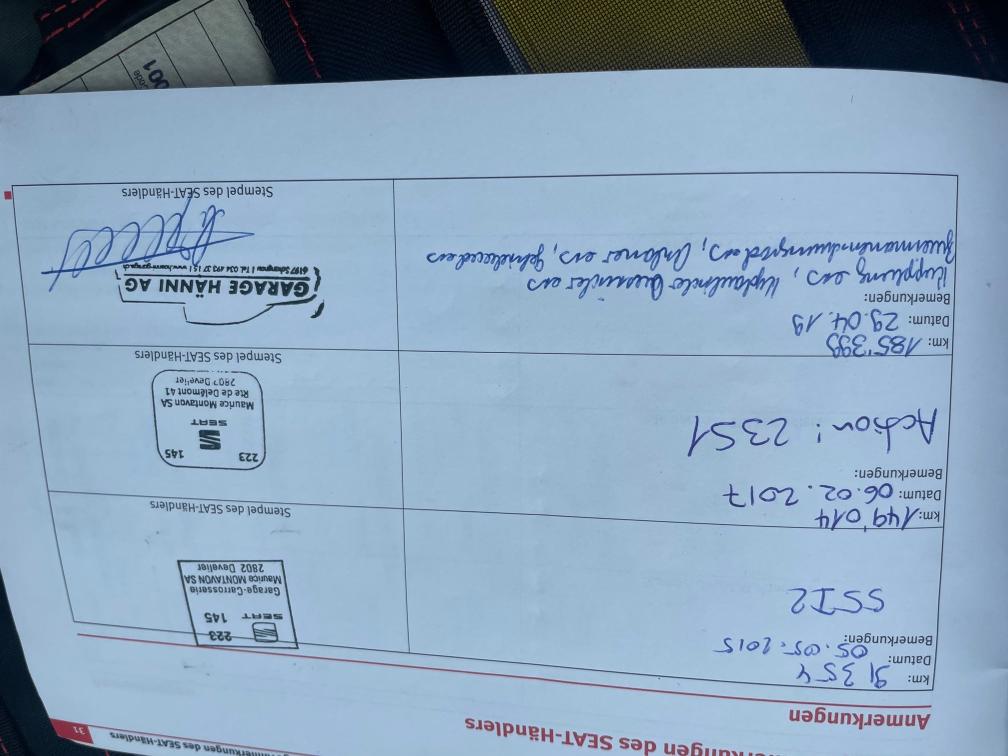 31
Anmerkungen des SEAT-Händlers
Anmerkungen des SEAT-Händlers
Anmerkungen
km: 91354
Datum: 05.05.2015
Bemerkungen:
SSI2
223
SEAT 145
Garage-Carrosserie
Maurice MONTAVON SA
2802 Develier
Stempel des SEAT-Händlers
km: 149'014
Datum: 06.02.2017
Bemerkungen:
Action: 23S1
223 145
SEAT
Maurice Montavon SA
Rte de Delémont 41
2802 Develier
Stempel des SEAT-Händlers
km: 185'399
Datum: 29.04.19
Bemerkungen:
Kupplung ers, ers
ers, ers, ers
GARAGE HÄNNI AG
6197 Schangnau | Tel. 034 493 37 15 |
Stempel des SEAT-Händlers
001